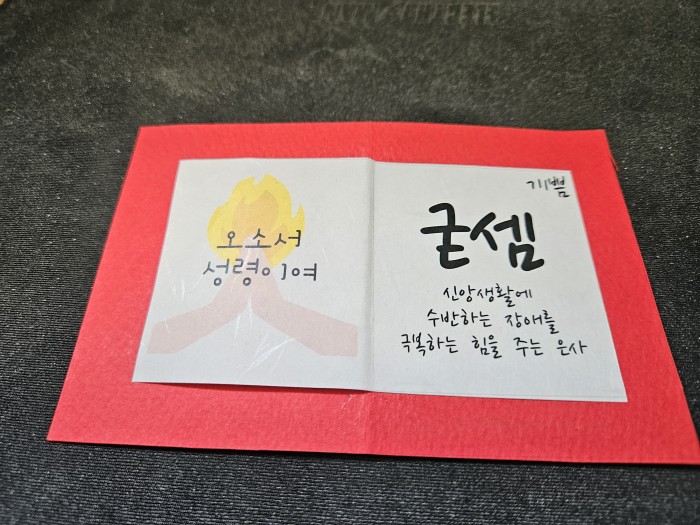 오소서
성령이여
기쁨
굳셈
신앙생활에
수반하는 장애를
극복하는 힘을 주는 은사